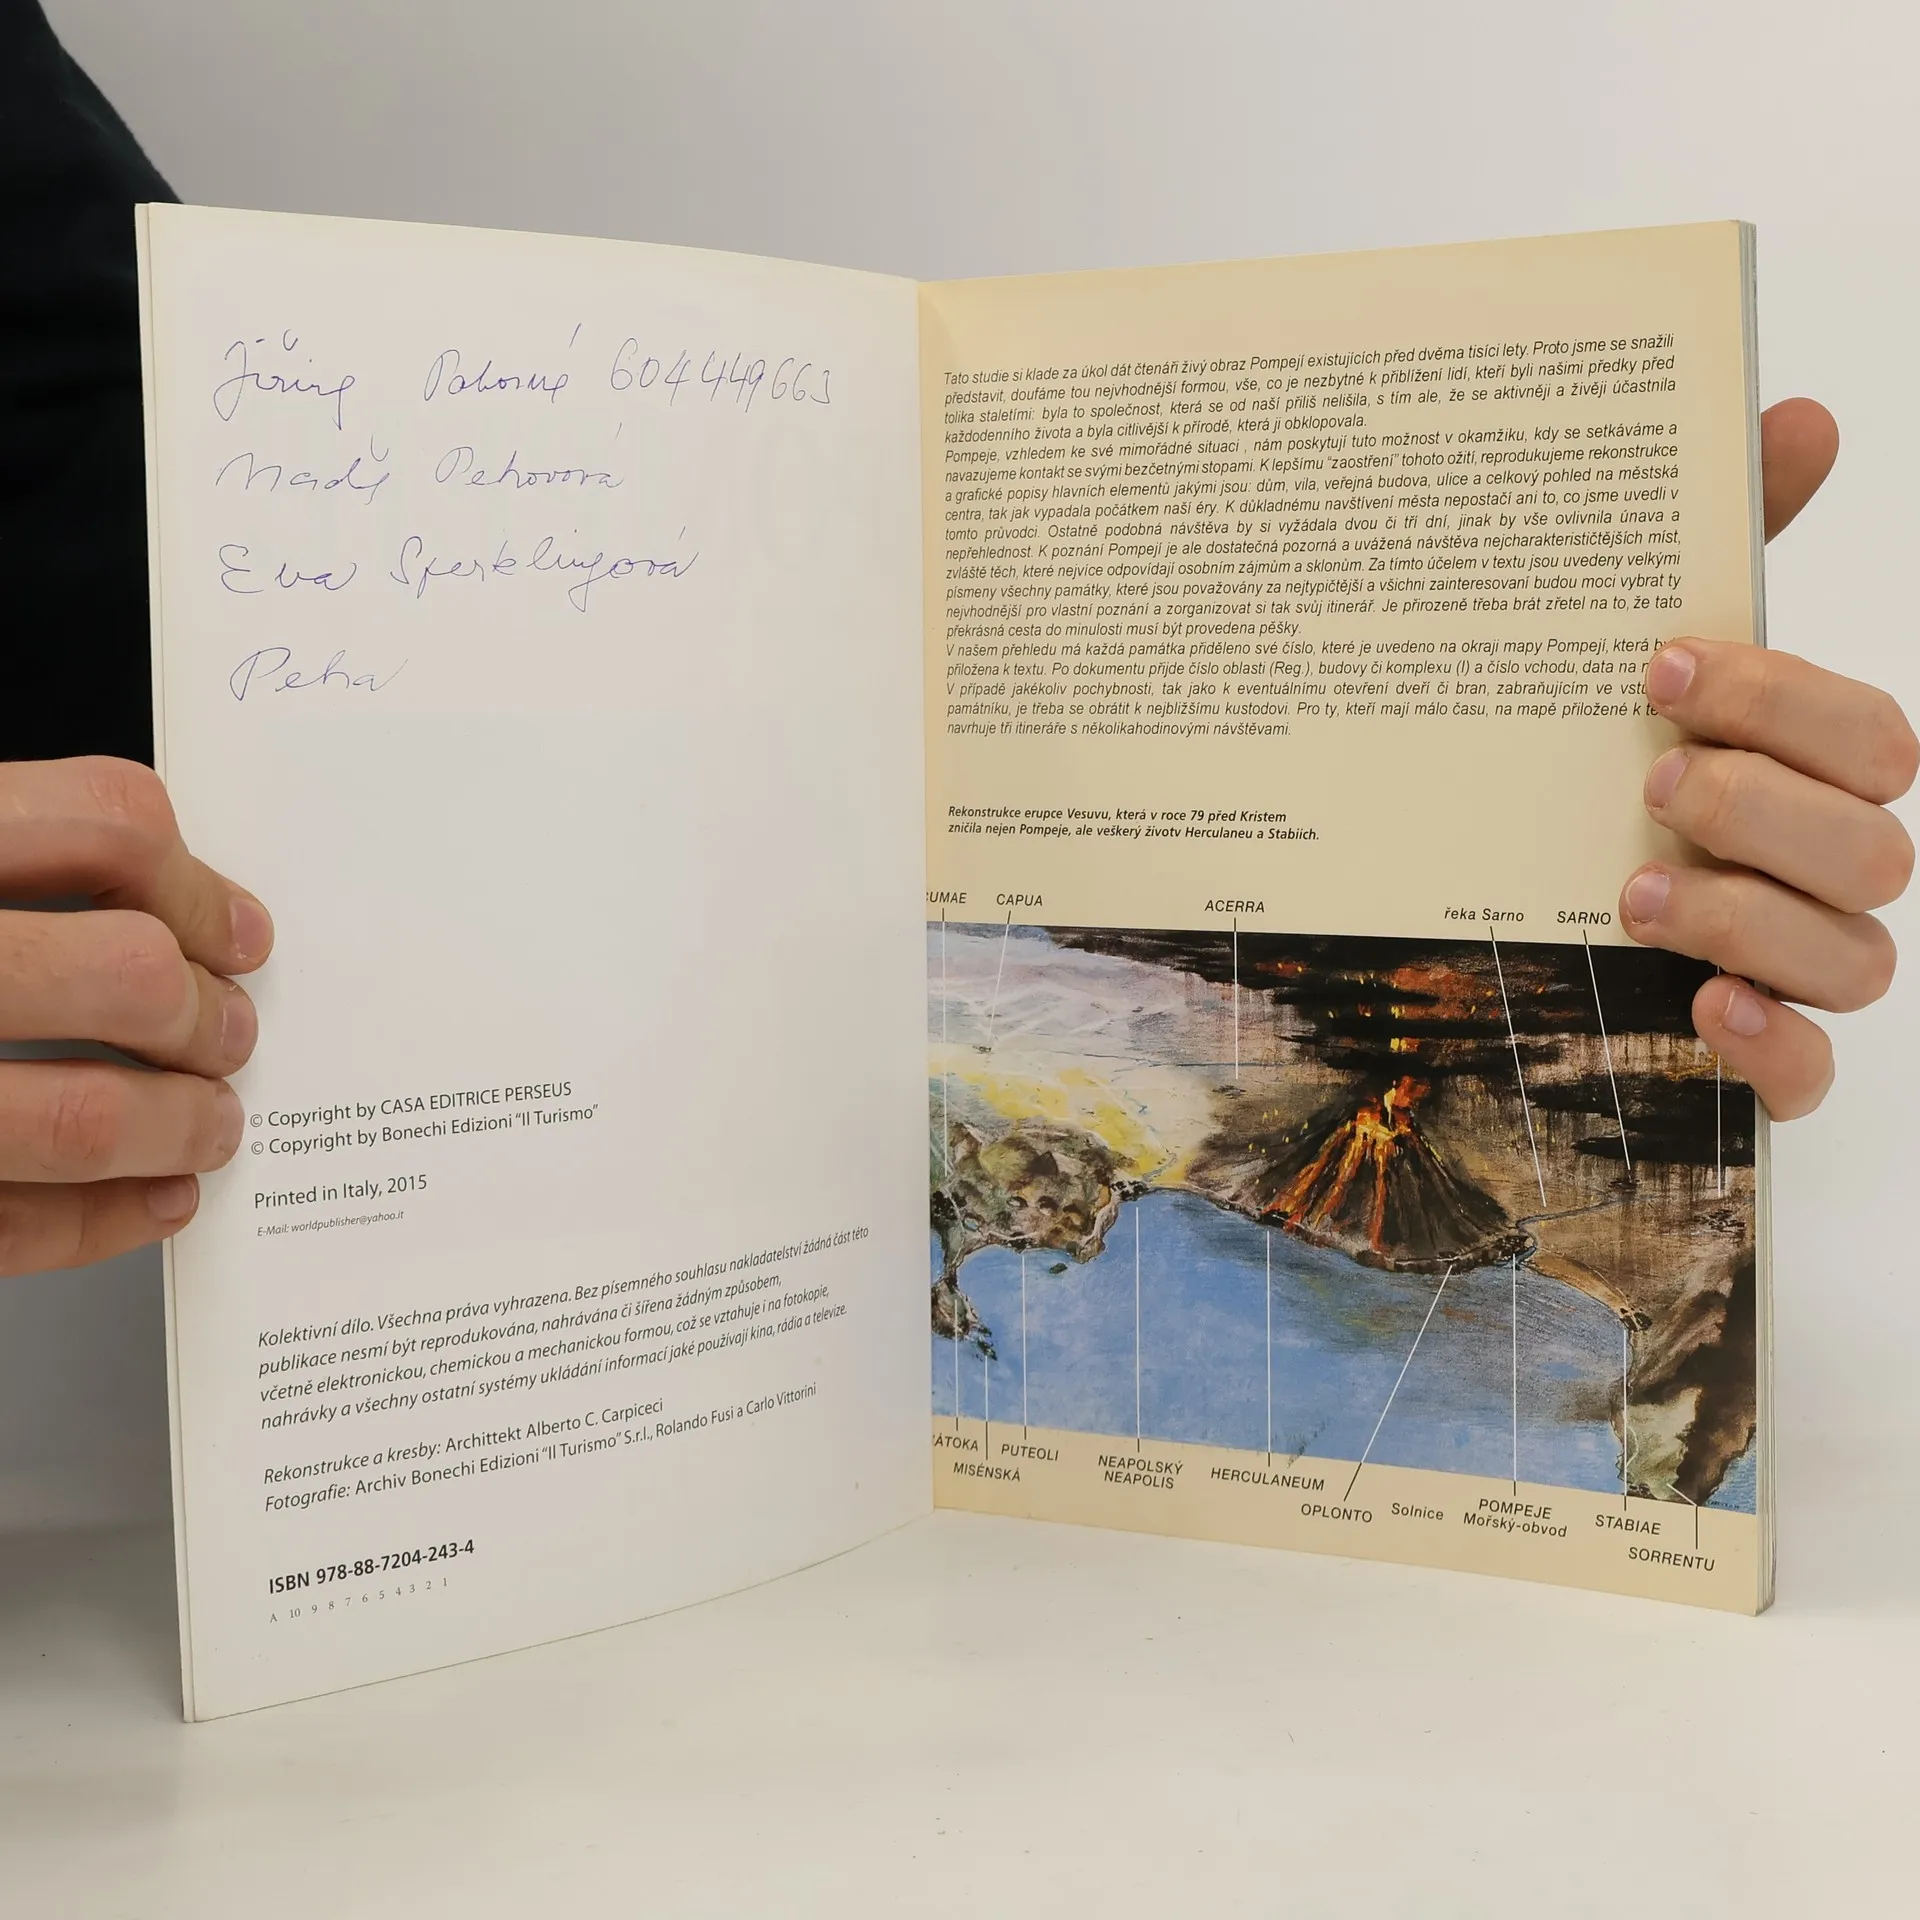 Jiřina Pokorná 604449663
Naďa Pekovová
Eva Sperklingová
Petra
© Copyright by CASA EDITRICE PERSEUS
© Copyright by Bonechi Edizioni “Il Turismo”
Printed in Italy, 2015
E-Mail: worldpublisher@yahoo.it
Kolektivní dílo. Všechna práva vyhrazena. Bez písemného souhlasu nakladatelství žádná část této
publikace nesmí být reprodukována, nahrávána či šířena žádným způsobem,
včetně elektronickou, chemickou a mechanickou formou, což se vztahuje i na fotokopie,
nahrávky a všechny ostatní systémy ukládání informací jaké používají kina, rádia a televize.
Rekonstrukce a kresby: Archittekt Alberto C. Carpiceci
Fotografie: Archiv Bonechi Edizioni “Il Turismo” S.r.l., Rolando Fusi a Carlo Vittorini
ISBN 978-88-7204-243-4
A 10 9 8 7 6 5 4 3 2 1
Tato studie si klade za úkol dát čtenáři živý obraz Pompejí existujících před dvěma tisíci lety. Proto jsme se snažili
představit, doufáme tou nejvhodnější formou, vše, co je nezbytné k přiblížení lidí, kteří byli našimi předky před
tolika staletími: byla to společnost, která se od naší příliš nelišila, s tím ale, že se aktivněji a živěji účastnila
každodenního života a byla citlivější k přírodě, která ji obklopovala.
Pompeje, vzhledem ke své mimořádné situaci , nám poskytují tuto možnost v okamžiku, kdy se setkáváme a
navazujeme kontakt se svými bezčetnými stopami. K lepšímu “zaostření” tohoto ožití, reprodukujeme rekonstrukce
a grafické popisy hlavních elementů jakými jsou: dům, vila, veřejná budova, ulice a celkový pohled na městská
centra, tak jak vypadala počátkem naší éry. K důkladnému navštívení města nepostačí ani to, co jsme uvedli v
tomto průvodci. Ostatně podobná návštěva by si vyžádala dvou či tří dní, jinak by vše ovlivnila únava a
nepřehlednost. K poznání Pompejí je ale dostatečná pozorná a uvážená návštěva nejcharakterističtějších míst,
zvláště těch, které nejvíce odpovídají osobním zájmům a sklonům. Za tímto účelem v textu jsou uvedeny velkými
písmeny všechny památky, které jsou považovány za nejtypičtější a všichni zainteresovaní budou moci vybrat ty
nejvhodnější pro vlastní poznání a zorganizovat si tak svůj itinerář. Je přirozeně třeba brát zřetel na to, že tato
překrásná cesta do minulosti musí být provedena pěšky.
V našem přehledu má každá památka přiděleno své číslo, které je uvedeno na okraji mapy Pompejí, která
přiložena k textu. Po dokumentu přijde číslo oblasti (Reg.), budovy či komplexu (I) a číslo vchodu, data na
V případě jakékoliv pochybnosti, tak jako k eventuálnímu otevření dveří či bran, zabraňujícím ve
památníku, je třeba se obrátit k nejbližšímu kustodovi. Pro ty, kteří mají málo času, na mapě přiložené k
navrhuje tři itineráře s několikahodinovými návštěvami.
Rekonstrukce erupce Vesuvu, která v roce 79 před Kristem
zničila nejen Pompeje, ale veškerý životv Herculaneu a Stabiích.
UMAE CAPUA ACERRA řeka Sarno SARNO
ÁTOKA
MISÉNSKÁ
PUTEOLI
NEAPOLSKÝ
NEAPOLIS
HERCULANEUM
OPLONTO
Solnice
POMPEJE
Mořský-obvod
STABIAE
SORRENTU